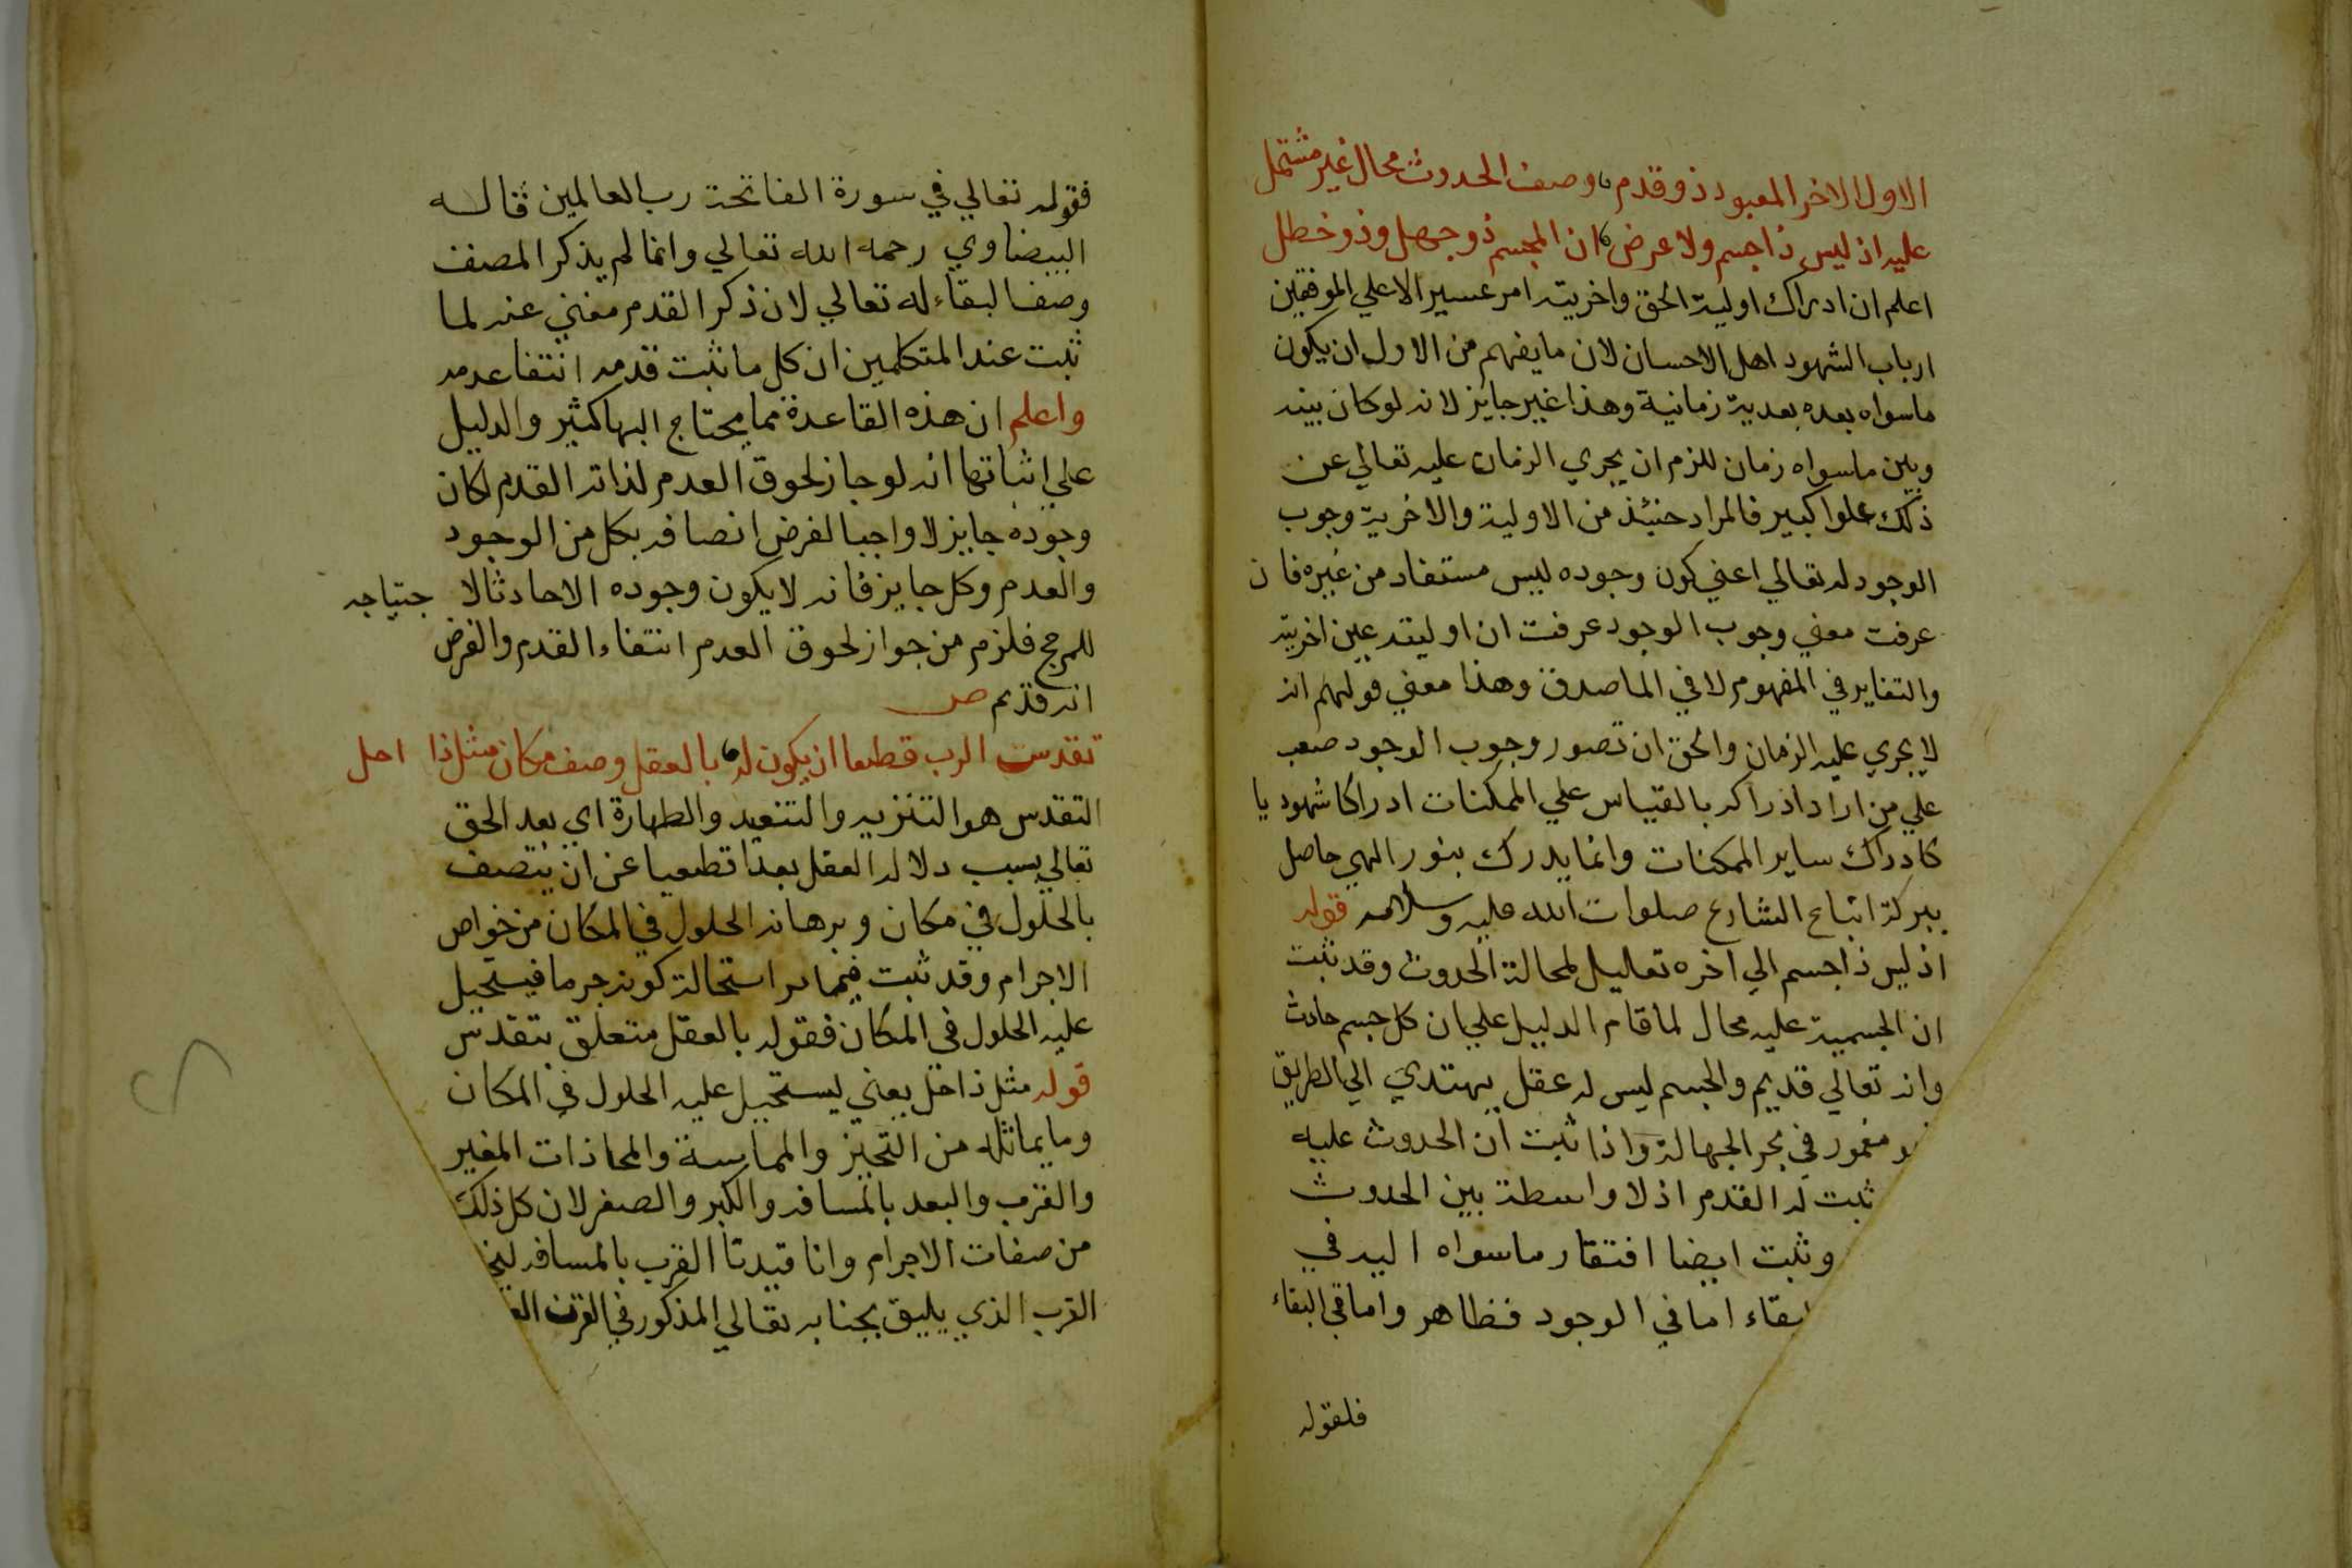 الاول الاخر المعبود ذو قدم وصف الحدوث محال غير مشتمل
عليه اذ ليس ذا جسم ولا عرض ان المجسم ذو جهل وذو خطل
اعلم ان ادراك اولية الحق واخريته امر عسير الا علي الموفقين
ارباب الشهود اهل الاحسان لان ما يفهم من الاول ان يكون
ماسواه بعده بعدية زمانية وهذا غير جايز لانه لو كان بينه
وبين ماسواه زمان للزم ان يجري الزمان عليه تعالي عن
ذلك علوا كبير فالمراد حنيئذ من الاولية والاخرية وجوب
الوجود له تعالي اعني كون وجوده ليس مستفاد من غيره فان
عرفت معني وجوب الوجود عرفت ان اوليته عين اخريته
والتغاير في المفهوم لا في الماصدق وهذا معني قولهم انه
لا يجري عليه الزمان والحق ان تصور وجوب الوجود صعب
علي من اراد اذراكه بالقياس علي الممكنات ادراكا شهوديا
كادراك ساير الممكنات وانما يدرك بنور الهي حاصل
ببركة اتباع الشارع صلوات الله عليه وسلامه قوله
اذ ليس ذا جسم الي اخره تعاليل لمحالة الحدوث وقد ثبت
ان الجسمية عليه محال لما قام الدليل علي ان كل جسم حادث
وانه تعالي قديم والجسم ليس له عقل يهتدي الي الطريق
مغمور في بحر الجهالة واذا ثبت ان الحدوث عليه
ثبت له القدم اذ لا واسطة بين الحدوث
وثبت ايضا افتقار ماسواه اليه في
بقاء اما في الوجود فظاهر واما في البقاء
فلقوله
فقوله تعالي في سورة الفاتحة رب العالمين قاله
البيضاوي رحمه الله تعالي وانما لم يذكر المصنف
وصف البقاء له تعالي لان ذكر القدم مغني عنه لما
ثبت عند المتكلمين ان كل ما ثبت قدمه انتفا عدمه
واعلم ان هذه القاعدة مما يحتاج اليها كثير والدليل
علي اثباتها انه لو جاز لحوق العدم لذاته القدم لكان
وجوده جايز لا واجبا لفرض اتصافه بكل من الوجود
والعدم وكل جايز فانه لا يكون وجوده الا حادثا لا حتياجه
للمرجح فلزم من جواز لحوق العدم انتفاء القدم والفرض
انه قديم ص
تقدست الرب قطعا ان يكون له بالعقل وصف مكان مثل ذا احل
التقدس هو التنزيه والتبعيد والطهارة اي بعد الحق
تعالي بسبب دلالة العقل بعدا قطعيا عن ان يتصف
بالحلول في مكان وبرهانه الحلول في المكان من خواص
الاجرام وقد ثبت فيما مر استحالة كونه جرما فيستحيل
عليه الحلول في المكان فقوله بالعقل متعلق بتقدس
قوله مثل ذا احل يعني يستحيل عليه الحلول في المكان
وما يماثله من التحيز والمماسة والمحاذات المغير
والقرب والبعد بالمسافه والكبر والصغر لان كل ذلك
من صفات الاجرام وانا قيدنا القرب بالمسافه
القرب الذي يليق بجنابه تعالي المذكور في القرن